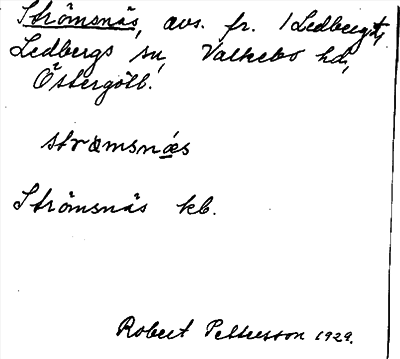 Strömsnäs, avs. fr. 1 Ledberg,
Ledbergs sn, Valkebo hd,
Östergötl.
strœmsnœ́s
Strömsnäs kb.
Robert Pettersson 1929.